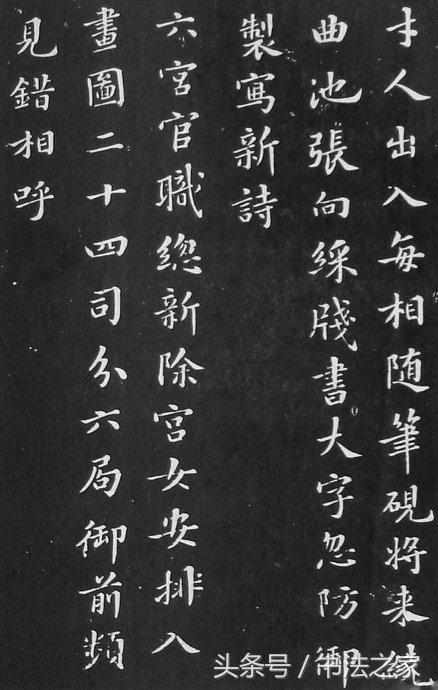 才人出入每相随筆硯將来繞
曲池張向綵牋書大字忽防御
製寫新詩
六宮官職總新除宮女安排入
畫圖二十四司分六局御前頻
見錯相呼
头条号 / 书法之家